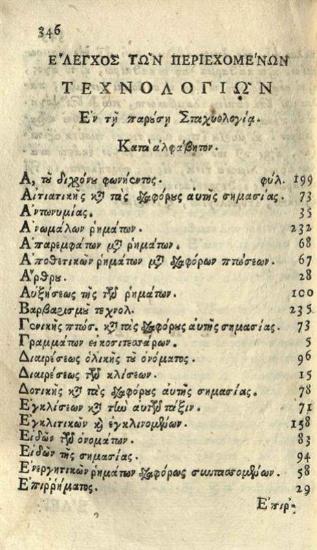 346
ΕʹΛΕΓΧΟΣ ΤΩ͂Ν ΠΕΡΙΕΧΟΜΕʹΝΩΝ
ΤΕΧΝΟΛΟΓΙΩ͂Ν
Εν τῇ παρούσῃ Σταχυολογίᾳ.
Κατ' αλφάβητον.
Α, τοῦ διχρόνου φωνήεντος. φύλ. 199
Αἰτιατικῆς καὶ τὰς διαφόρους αὐτῆς σημασίας. 73
Αντωνυμίας. 35
Ανωμάλων ῥημάτων. 232
Απαρεμφάτων μτ ῥημάτων. 68
Αποθετικῶν ῥημάτων μτ διαφόρων πτώσεων. 67
Αρθρου. 28
Αυξήσεως τῆς τῶν ῥημάτων. 100
Βαρβαρισμοῦ τεχνολ. 235
Γενικῆς πτώσ. καὶ τὰς διαφόρους αὐτῆς σημασίας. 73
Γραμμάτων εἰκοσιτεσσάρων. 5
Διαιρέσεως ὁλικῆς τοῦ ονόματος. 96
Διαιρέσεως τῶν κλίσεων. 15
Δοτικῆς καὶ τὰς διαφόρους αὐτῆς σημασίας. 78
Εγκλίσεων καὶ τὴν αὐτῶν τάξιν. 71
Εγκλιτικῶν καὶ εγκλινομένων. 158
Ειδῶν τῶν ονομάτων. 83
Ειδῶν τῆς σημασίας. 94
Ενεργητικῶν ῥημάτων διαφόρως συντασσομένων. 58
Επιρρήματος. 29
Επιρ-